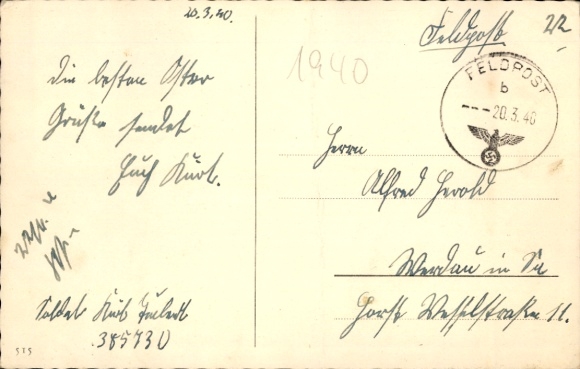 20.3.40.
Die besten Oster
Grüße sendet
Euch Kurt.
Soldat Kurt
38573 D
515
1940
Feldpost
22
FELDPOST
b
---20.3.40
Herrn
Alfred Herold
Werdau in Sa
Horst Wesselstraße 11.